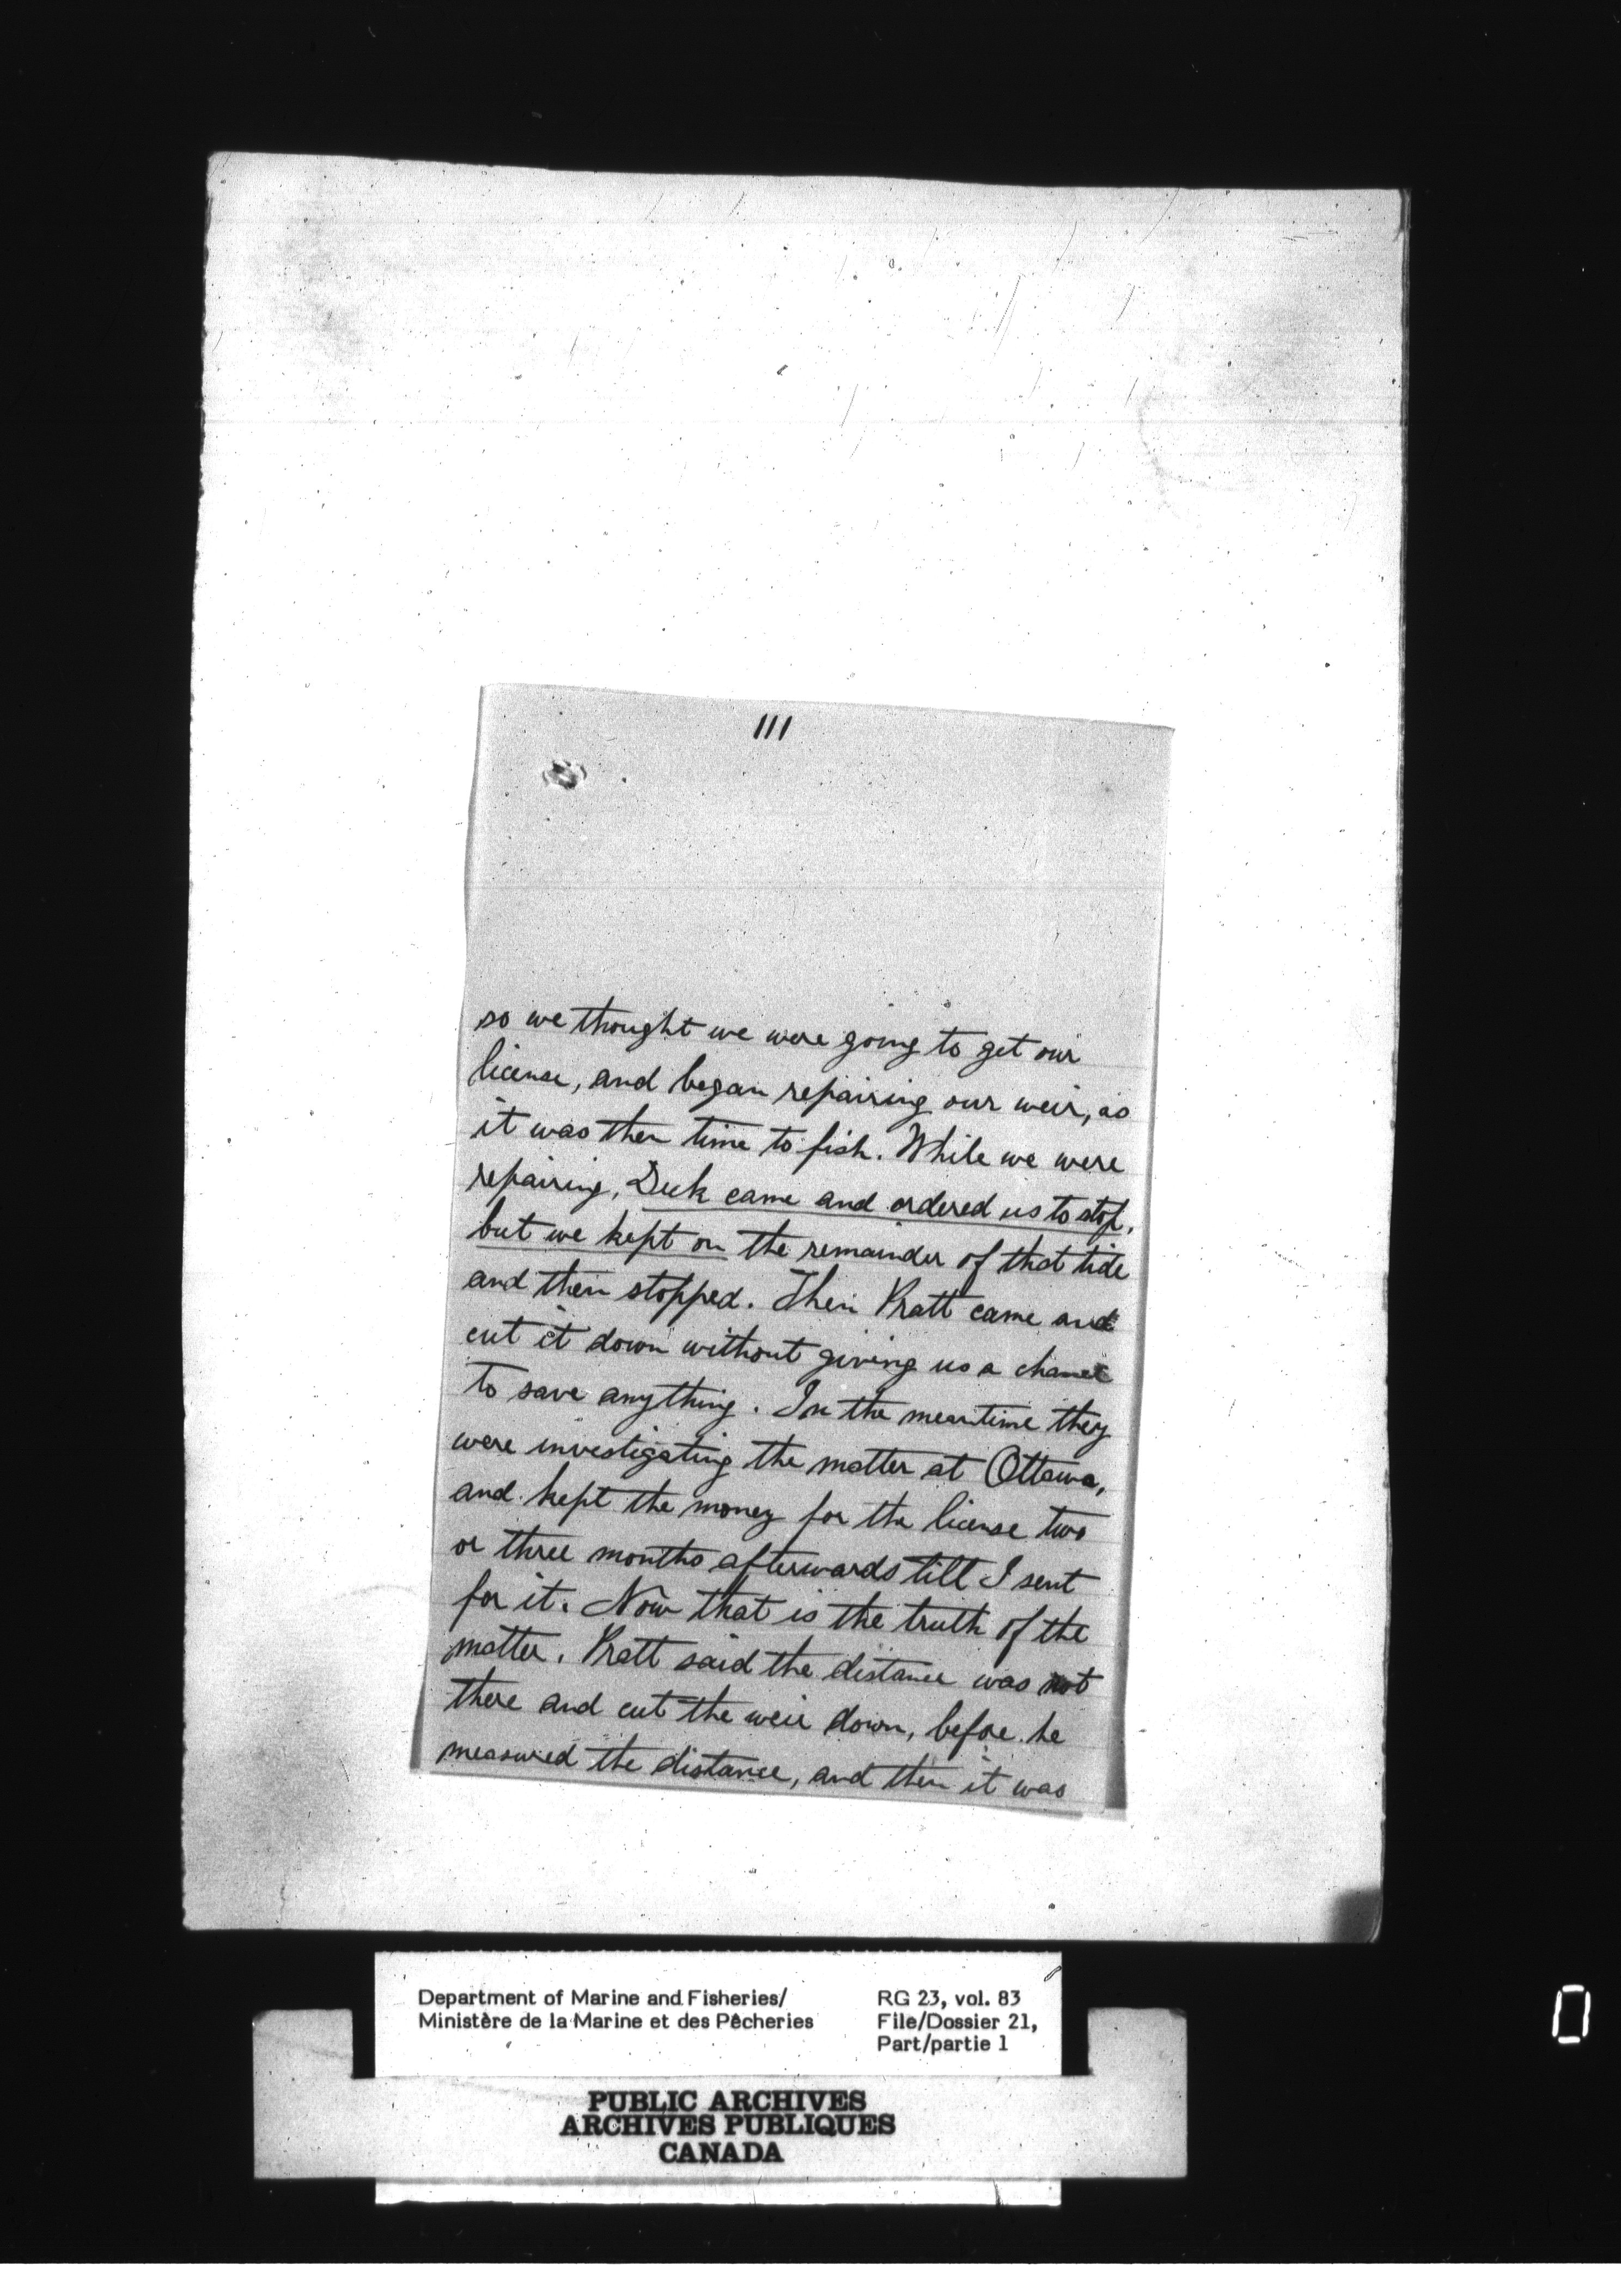 111
so we thought we were going to get our
license, and began repairing our weir, as
it was then time to fish. While we were
repairing, Deek came and ordered us to stop,
but we kept on the remainder of that tide
and then stopped. Then Pratt came and
cut it down without giving us a chance
to save anything. In the meantime they
were investigating the matter at Ottawa,
and kept the money for the license two
or three months afterwards till I sent
for it. Now that is the truth of the
matter. Pratt said the distance was not
there and cut the weir down, before he
measured the distance, and then it was
Department of Marine and Fisheries/
Ministère de la Marine et des Pêcheries
RG 23, vol. 83
File/Dossier 21,
Part/partie 1
PUBLIC ARCHIVES
ARCHIVES PUBLIQUES
CANADA